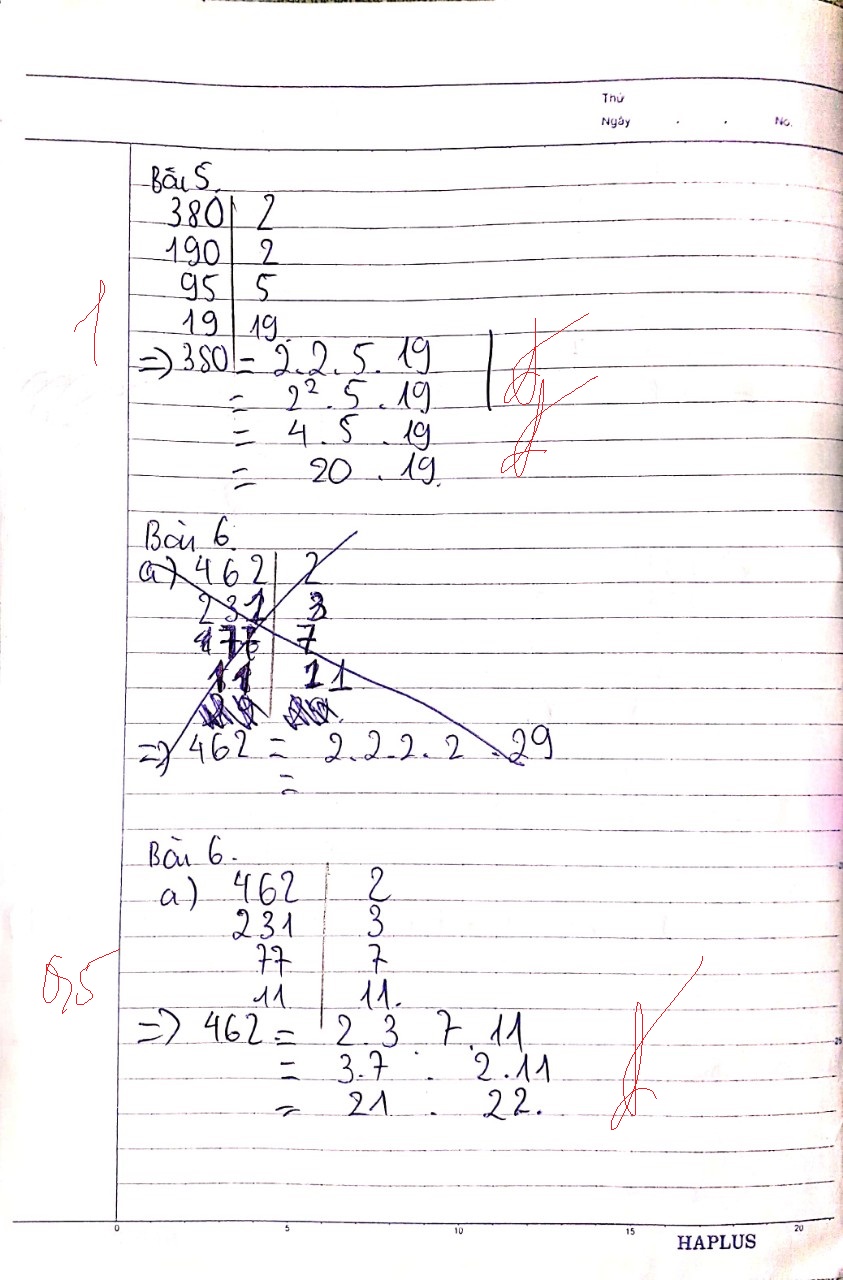 Thứ
Ngày . . No.
Bài 5.
380 | 2
190 | 2
95 | 5
19 | 19
1
=> 380 = 2.2.5.19
= 2².5.19
= 4.5.19
= 20.19.
Bài 6.
a) 462 | 2
231 | 3
7
11 | 11
=> 462 = 2.2.2.2.29
=
Bài 6.
a) 462 | 2
231 | 3
77 | 7
11 | 11.
0,5
=> 462 = 2.3.7.11
= 3.7.2.11
= 21.22.
0 5 10 15 20
25
HAPLUS